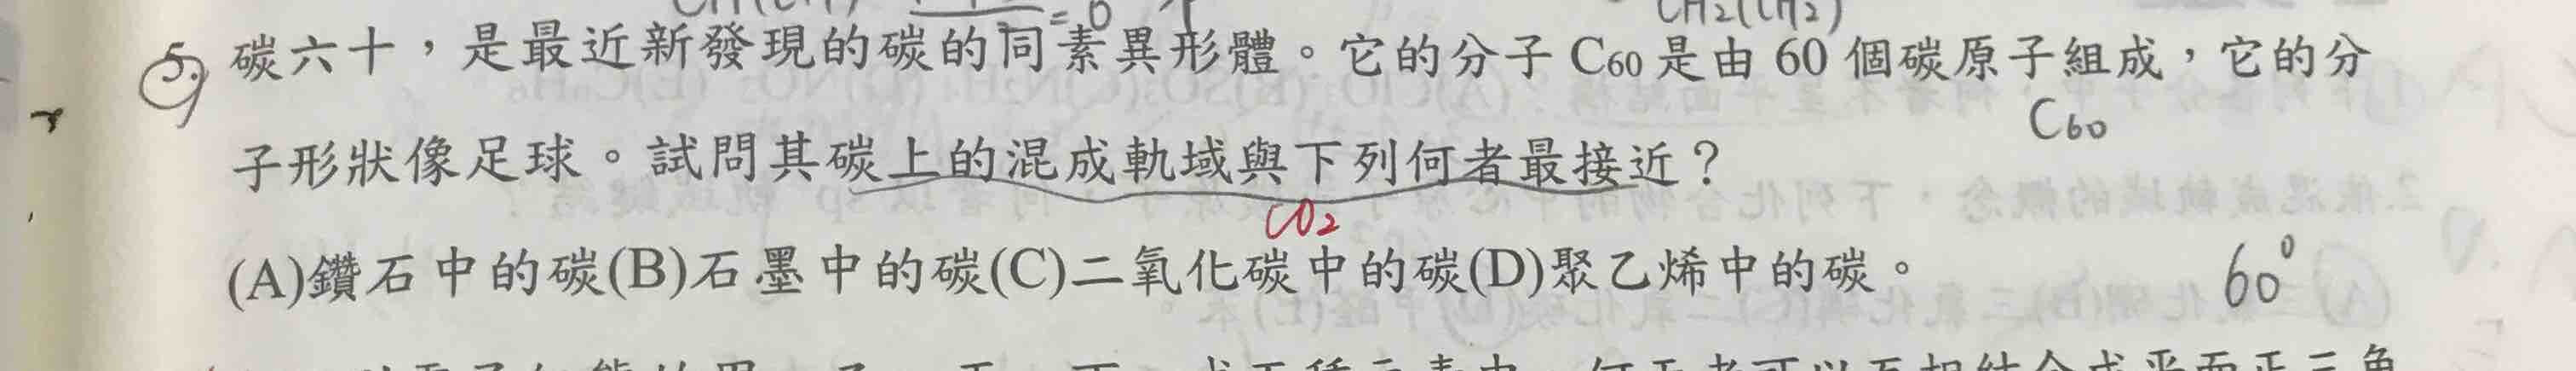 5. 碳六十，是最近新發現的碳的同素異形體。它的分子 C60 是由 60 個碳原子組成，它的分
C60
子形狀像足球。試問其碳上的混成軌域與下列何者最接近？
CO2
(A)鑽石中的碳(B)石墨中的碳(C)二氧化碳中的碳(D)聚乙烯中的碳。
60°